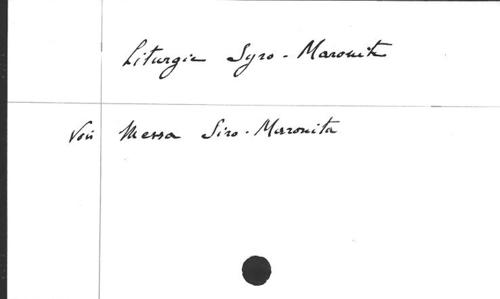 Liturgie Syro-Maronite
Voir Messa Siro-Maronita